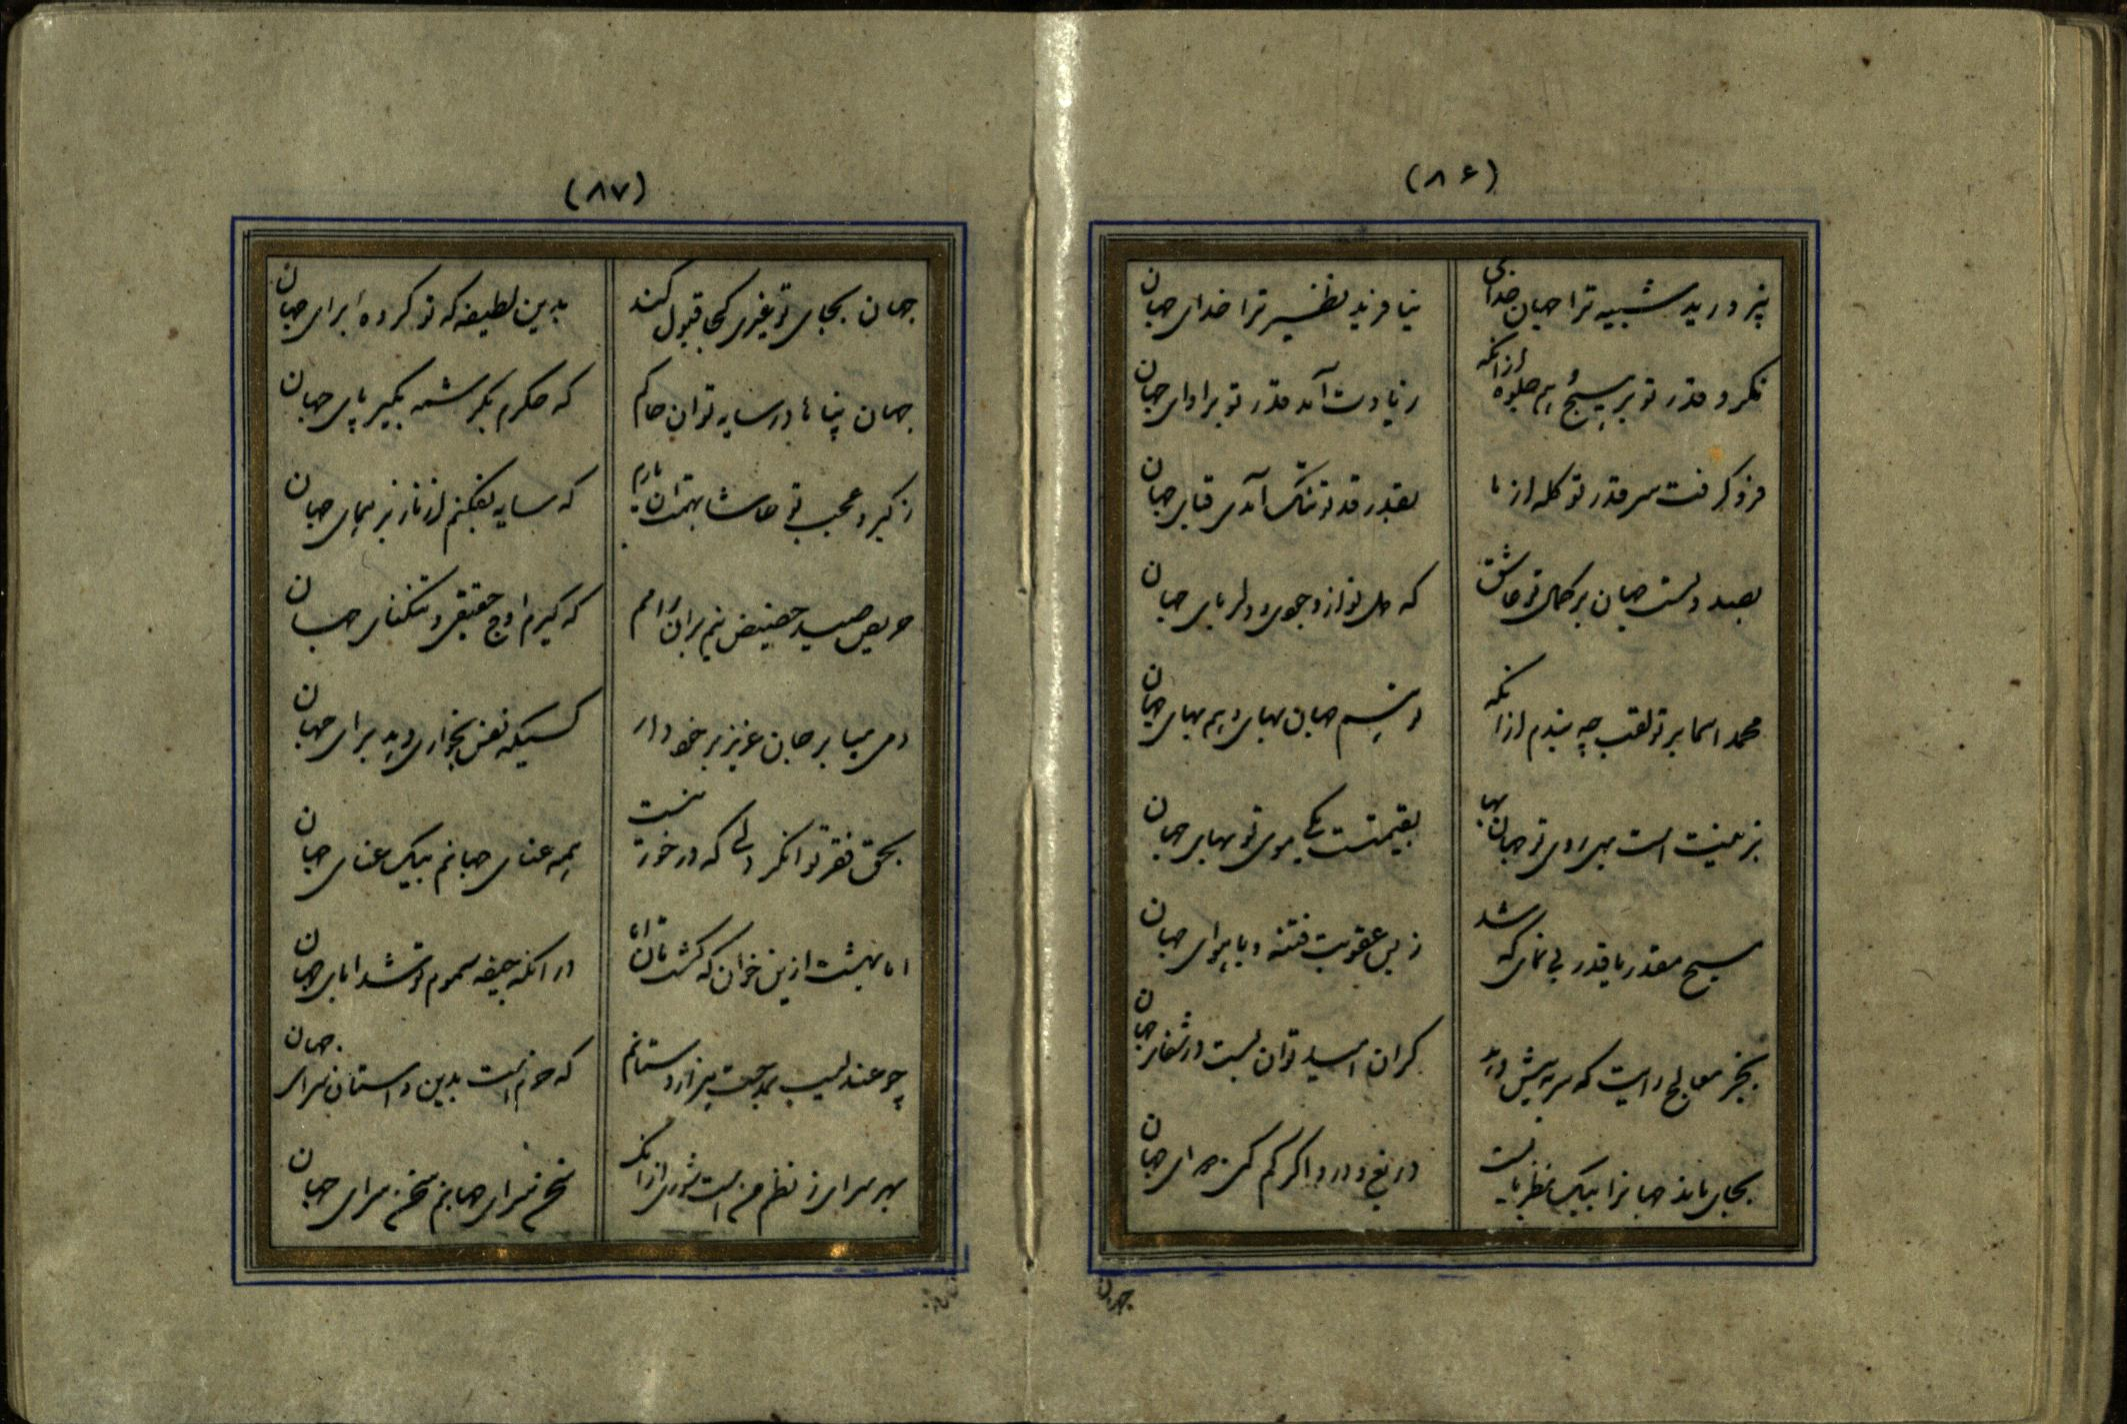 (۸۶)
نپرورید شبیه ترا جهان خدای نیافرید نظیر ترا خدای جهان
نکرد قدر تو بر هیچ جلوه ازانکه زیادت آمد قدر تو بر ادای جهان
فرو گرفت سر قدر تو کله از ما بقدر قد تو تنگ آمدی قبای جهان
بصد دلست جهان بر کمال تو عاشق که دل نواز وجودی و دلربای جهان
محمد اسما بر تو لقب چه بندم ازانکه جهان بهای و هم بهای جهان
بزینت است روی تو جهان بها بقیمتست یک موی تو بهای جهان
مسیح مقدر ما قدر بی نمای که شد زبس عقوبت فتنه وبا هوای جهان
بجز معالج رایت که سربه پیش درد کزان امید توان بست در شفای جهان
بجای ماند جهانرا بیک نظر بایست دریغ و درد اگر کم کنی دوای جهان
جهان
(۸۷)
جهان بجای تو غیری کجا قبول کند بدین لطیفه که تو کرده ابرای جهان
جهان پناها در سایه تو آن حاکم که حکم بکرشمه بگیر پای جهان
ز کبر و عجب نی حاشا بهمت آن دارم که سایه نفکنم از ناز بر همای جهان
حریص صید حضیض نیم بران رانم که گیرم اوج حقیقی و تنگنای جهان
دمی مباد بر جان عزیز برخودار کسیکه نفس بخواری دهد برای جهان
بحق فقر توانگر دلی که در خور نیست همه عنای جهانم بیک عنای جهان
ابا بهشت ازین خوان که گشت در انکه جیفه مسموم شد ابای جهان
چو عندلیب بمدحت هزار دستانم که خرم است بدین داستان سرای جهان
بهر سرای ز نظم من است شوری ازانک سخن سرای جهانم سخن سرای جهان